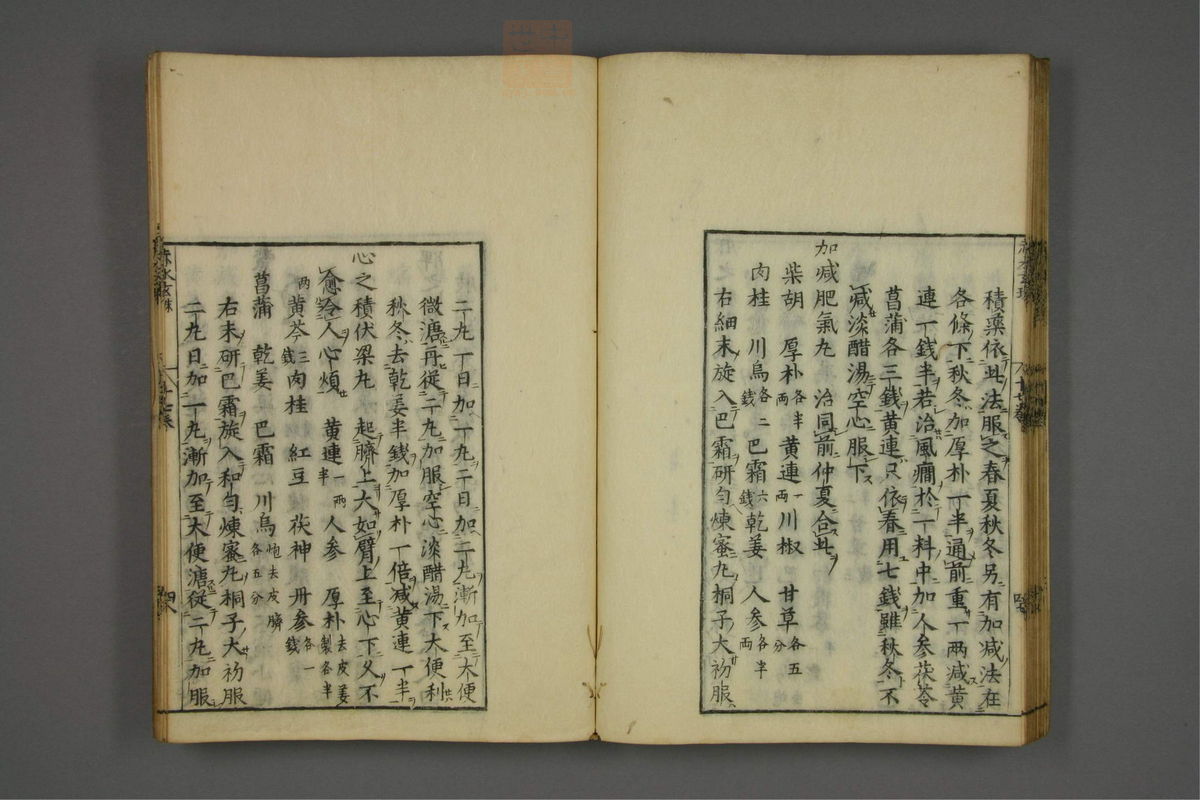 積藥依此法服之春夏秋冬另有加減法在
各條下秋冬加厚朴一半通前重一兩減黃
連一錢半若治風癇於一料中加人参茯苓
菖蒲各三錢黃連只依春用七錢雖秋冬不
減淡醋湯空心服下
加減肥氣丸 治同前仲夏合此
柴胡 厚朴各半兩 黃連一兩 川椒 甘草各五分
肉桂 川烏各二錢 巴霜六錢 乾姜 人参各半兩
右細末旋入巴霜研勻煉蜜丸桐子大初服
二丸一日加一丸二日加二丸漸加至大便
微溏再從二丸加服空心淡醋湯下大便利
秋冬去乾姜半錢加厚朴一倍減黃連一半
心之積伏梁丸 起臍上大如臂上至心下久不
愈令人心煩 黃連一兩半 人参 厚朴去皮姜製各半
兩 黃芩三錢 肉桂 紅豆 茯神 丹参各一錢
菖蒲 乾姜 巴霜 川烏炮去皮臍各五分
右末研巴霜旋入和勻煉蜜丸桐子大初服
二丸日加一丸漸加至大便溏從二丸加服